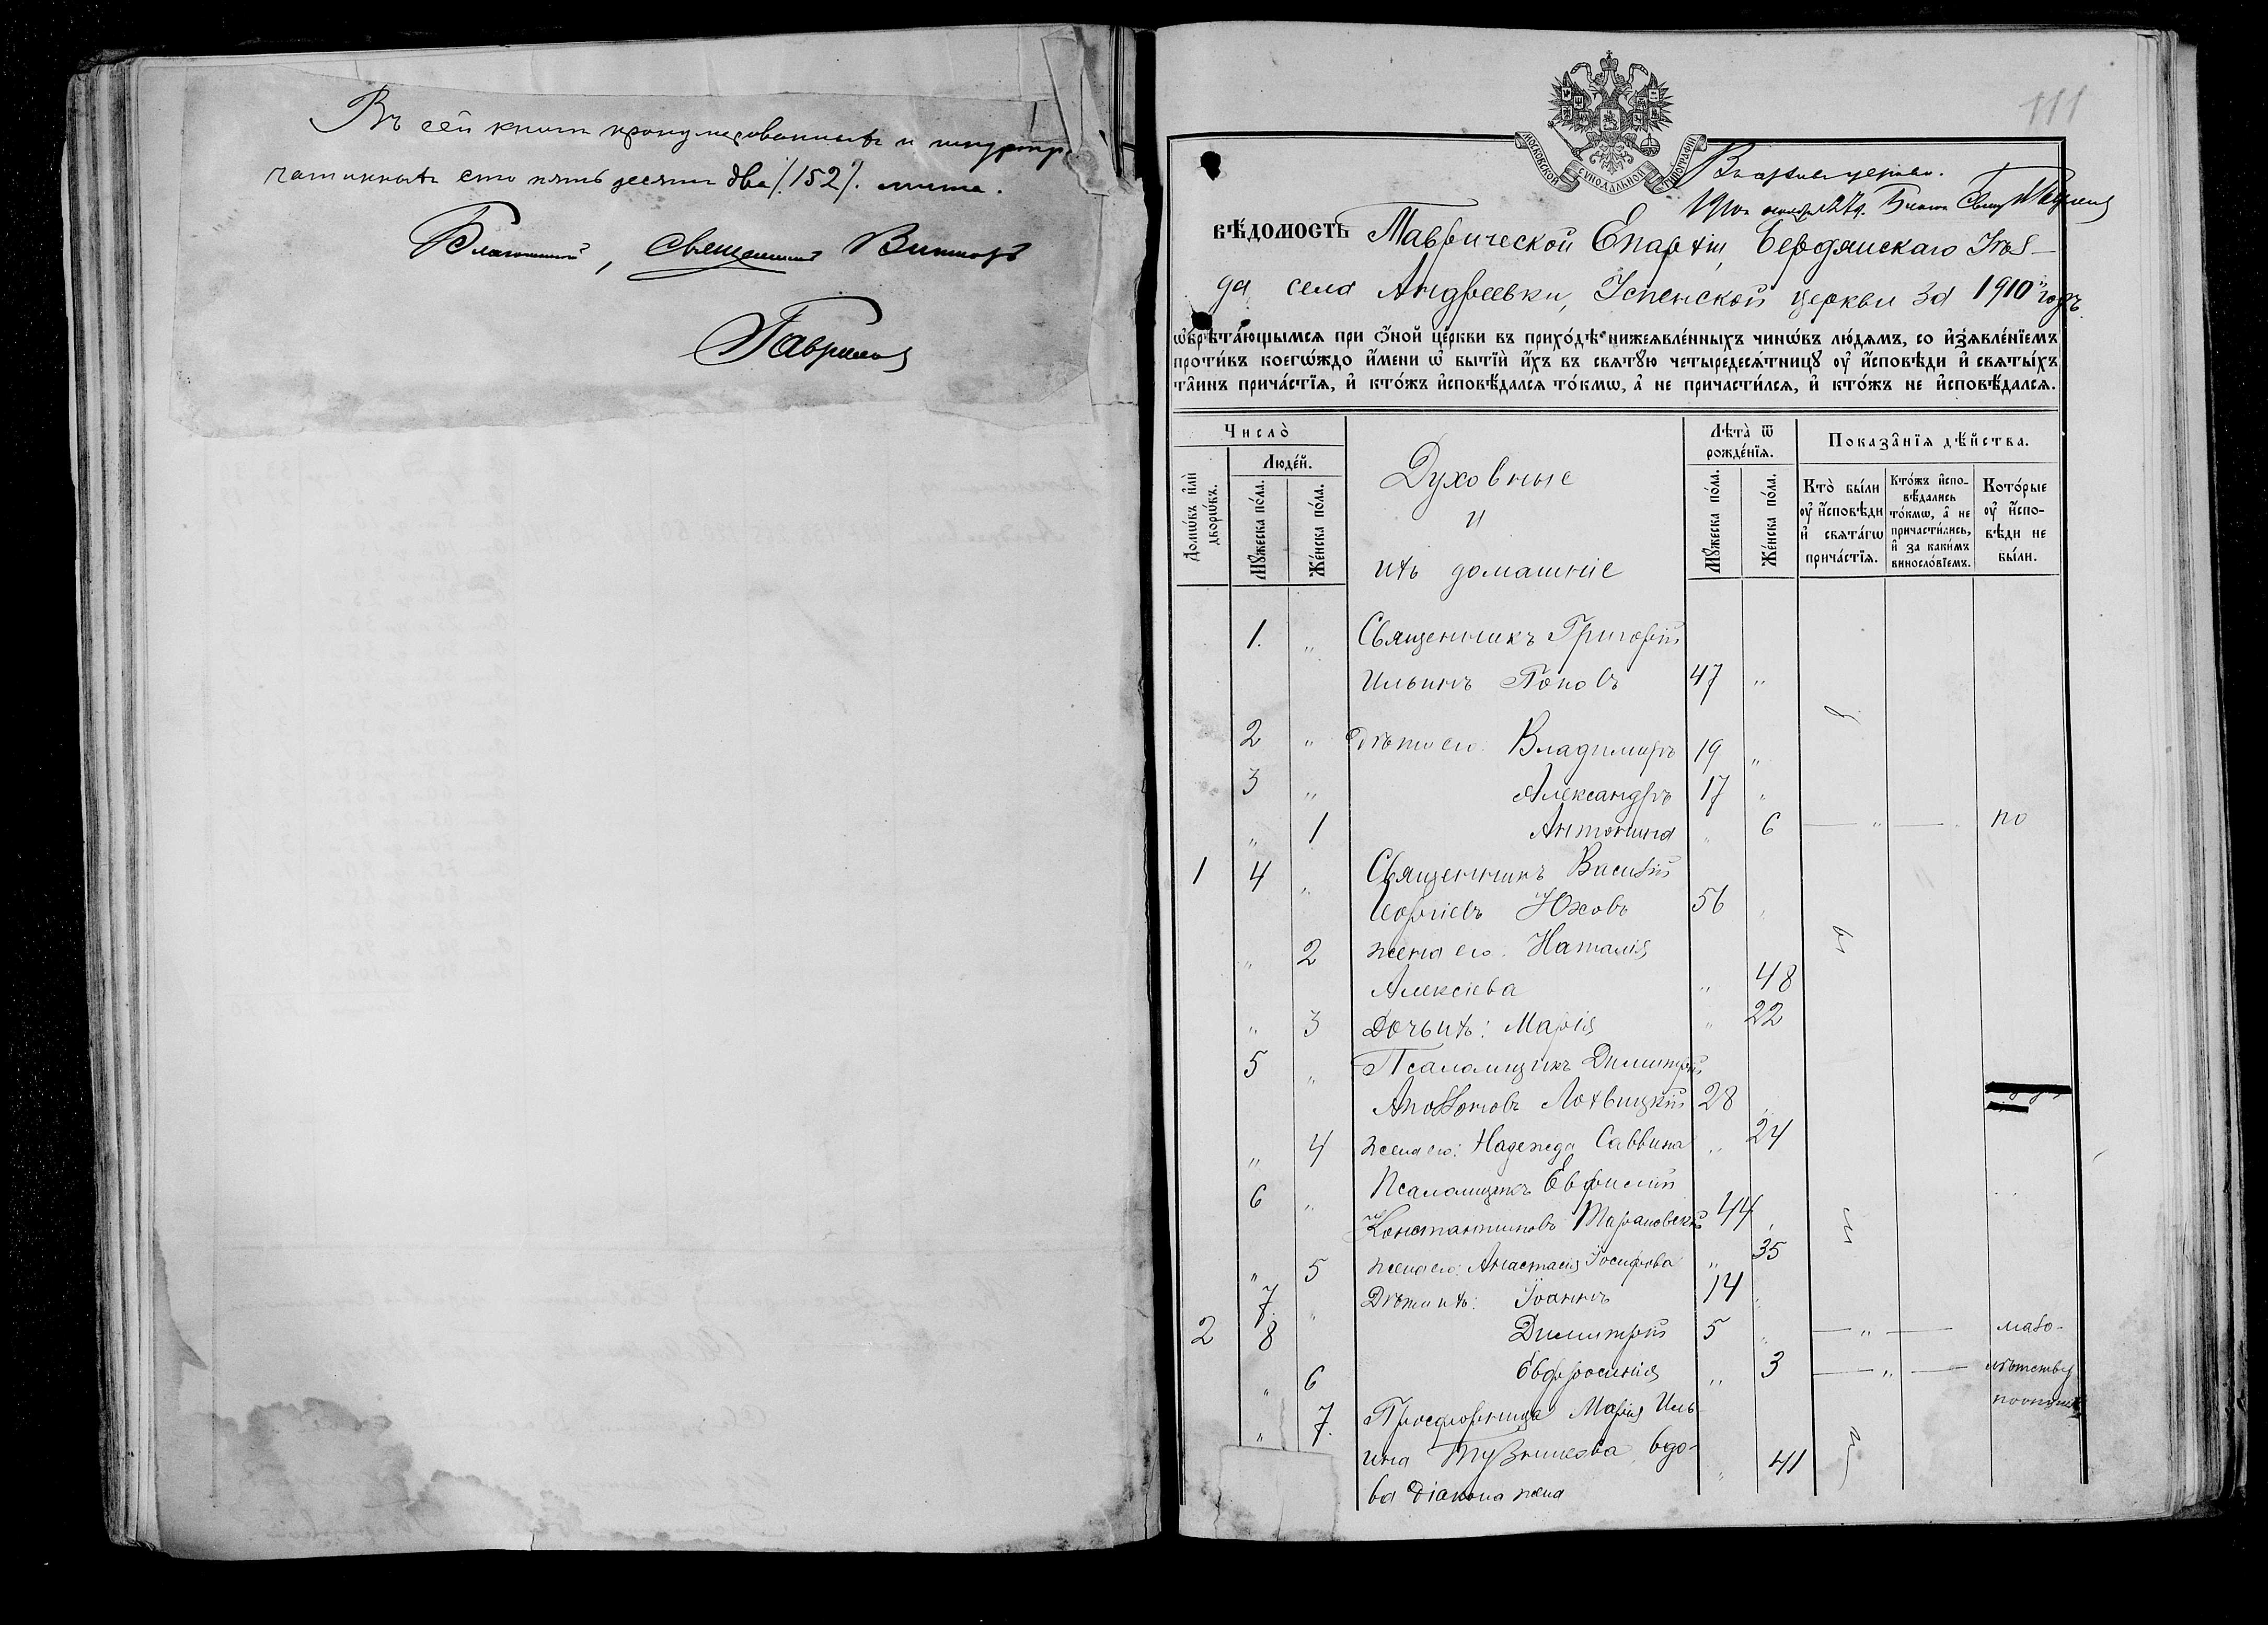 Въ сей книгѣ пронумерованныхъ и шнуропро-
чатанныхъ сто пятьдесятъ два /152/. листа.
Благочинный, Священникъ Викторъ
Гавриловъ
111
МОСКОВСКОЙ СѴНОДАЛЬНОЙ ТИПОГРАФІИ
Въ архивъ церкви.
1910 г. 27 д. Благоч. Свящ. В. Гавриловъ
ВѢДОМОСТЬ Таврической Епархіи, Бердянскаго Уѣз-
да села Андреевки, Успенской церкви за 1910 годъ
ѡбрѣта́ющымсѧ при ѻ҆́ной це́ркви въ прихо́дѣ нижеѧвле́нныхъ чинѡ́въ лю́демъ, со и҆з̾ѧвле́нїемъ
проти́въ коегѡ́ждо и҆́мени ѡ҆ бытїѝ и҆́хъ въ свѧтꙋ́ю четыредесѧ́тницꙋ ᲂу҆ и҆́сповѣди и҆ свѧты́хъ
та̑инъ прича́стїѧ, и҆ кто́жъ и҆сповѣ́далсѧ то́кмѡ, а҆ не причасти́лсѧ, и҆ кто́жъ не и҆сповѣ́далсѧ.
Число̀
Домѡ́въ и҆лѝ дворѡ́въ.
Люде́й.
Мꙋ́жеска по́ла.
Же́нска по́ла.
Духовные
и
ихъ домашніе
Лѣта̀ ѿ рожде́нїѧ.
Мꙋ́жеска по́ла.
Же́нска по́ла.
Показа̑нїѧ дѣ́йства.
Кто̀ бы́ли ᲂу҆ и҆́сповѣди и҆ свѧта́гѡ прича́стїѧ.
Кто́жъ и҆спо-
вѣ́дались то́кмѡ, а҆ не причасти́лись, и҆ за каки́мъ виносло́вїемъ.
Кото́рые ᲂу҆ и҆́спо-
вѣди не бы́ли.
1. „ Священникъ Григорій
Ильинъ Поповъ 47 „
2 „ Дѣти его: Владимиръ 19 „
3 „ Александръ 17 „
„ 1 Антонина „ 6 — „ — по
1 4 „ Священникъ Василій
Георгіевъ Юховъ 56 „
бы
„ 2 жена его: Наталія
Алексіева „ 48
„ 3 Дочь ихъ: Марія „ 22
5 „ Псаломщикъ Димитрій
Аполлоновъ Лохвицкій 28 „
„ 4 жена его: Надежда Саввина „ 24
6 „ Псаломщикъ Евфимій
Константиновъ Тарановскій 44 „
л
„ 5 жена его: Анастасія Іосифова „ 35
7. „ Дѣти ихъ: Іоаннъ 14 „
2 8 Димитрій 5 „ — „ — мало-
„ 6 Евфросинія „ 3 — „ — лѣтству
„ 7. Просфорница Марія Иль-
ина вдо- „ 41 и
ва діакона жена